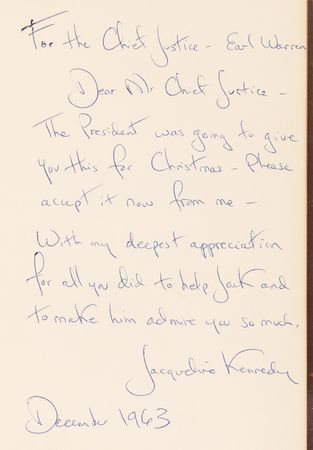 For the Chief Justice - Earl Warren
Dear Mr Chief Justice -
The President was going to give
you this for Christmas - Please
accept it now from me -
With my deepest appreciation
for all you did to help Jack and
to make him admire you so much.
Jacqueline Kennedy
December 1963